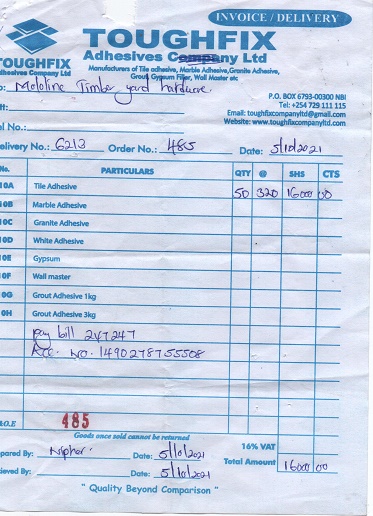 INVOICE / DELIVERY
TOUGHFIX
TOUGHFIX
Adhesives Company Ltd
dhesives Company Ltd
Manufacturers of Tile adhesive, Marble Adhesive,Granite Adhesive,
Grout Gypsum Filler, Wall Master etc
o: Mololine Timber yard hardware.
P.O. BOX 6793-00300 NBI
tt:
Tel: +254 729 111 115
Email: toughfixcompanyltd@gmail.com
Website: www.toughfixcompanyltd.com
el No.:
elivery No.: 6213 Order No.: 485 Date: 5/10/2021
No. PARTICULARS QTY @ SHS CTS
10A Tile Adhesive 50 320 16000 00
10B Marble Adhesive
10C Granite Adhesive
10D White Adhesive
10E Gypsum
10F Wall master
10G Grout Adhesive 1kg
10H Grout Adhesive 3kg
pay bill 247247
Acc. No. 1490278755508
.O.E 485
Goods once sold cannot be returned
16% VAT
pared By: Date: 5/10/2021
Total Amount 16000 00
cieved By: Date: 5/10/2021
" Quality Beyond Comparison "